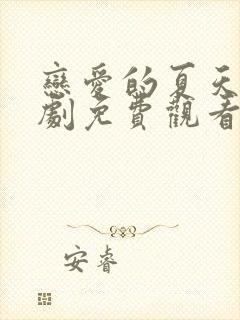 戀愛的夏天
劇免費觀看
安睿